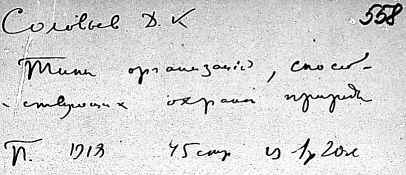 Соловьев Д. К 558
Типы организаций, способ-
ствующих охране природы
П. 1918 45 стр